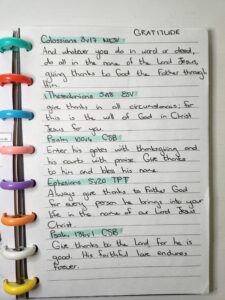 GRATITUDE
Colossians 3v17 NLSV
And whatever you do in word or deed,
do all in the name of the Lord Jesus,
giving thanks to God the Father through
Him.
1 Thessalonians 5v18 ESV
give thanks in all circumstances; for
this is the will of God in Christ
Jesus for you
Psalm 100v4 CSB
Enter his gates with thanksgiving and
his courts with praise. Give thanks
to him and bless his name.
Ephesians 5v20 TPT
Always give thanks to Father God
for every person he brings into your
life in the name of our Lord Jesus
Christ.
Psalm 136v1 CSB
Give thanks to the Lord, for he is
good. His faithful love endures
forever.